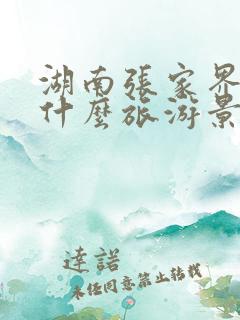 湖南張家界
什麼旅游景
達諾
未經同意禁止轉載